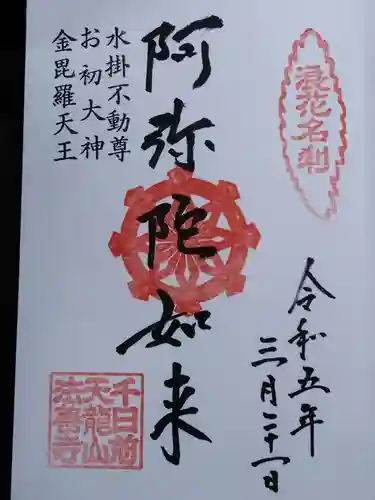 浪花名刹
令和五年
三月二十一日
阿弥陀如来
水掛不動尊
お初大神
金毘羅天王
千日前
天龍山
法善寺